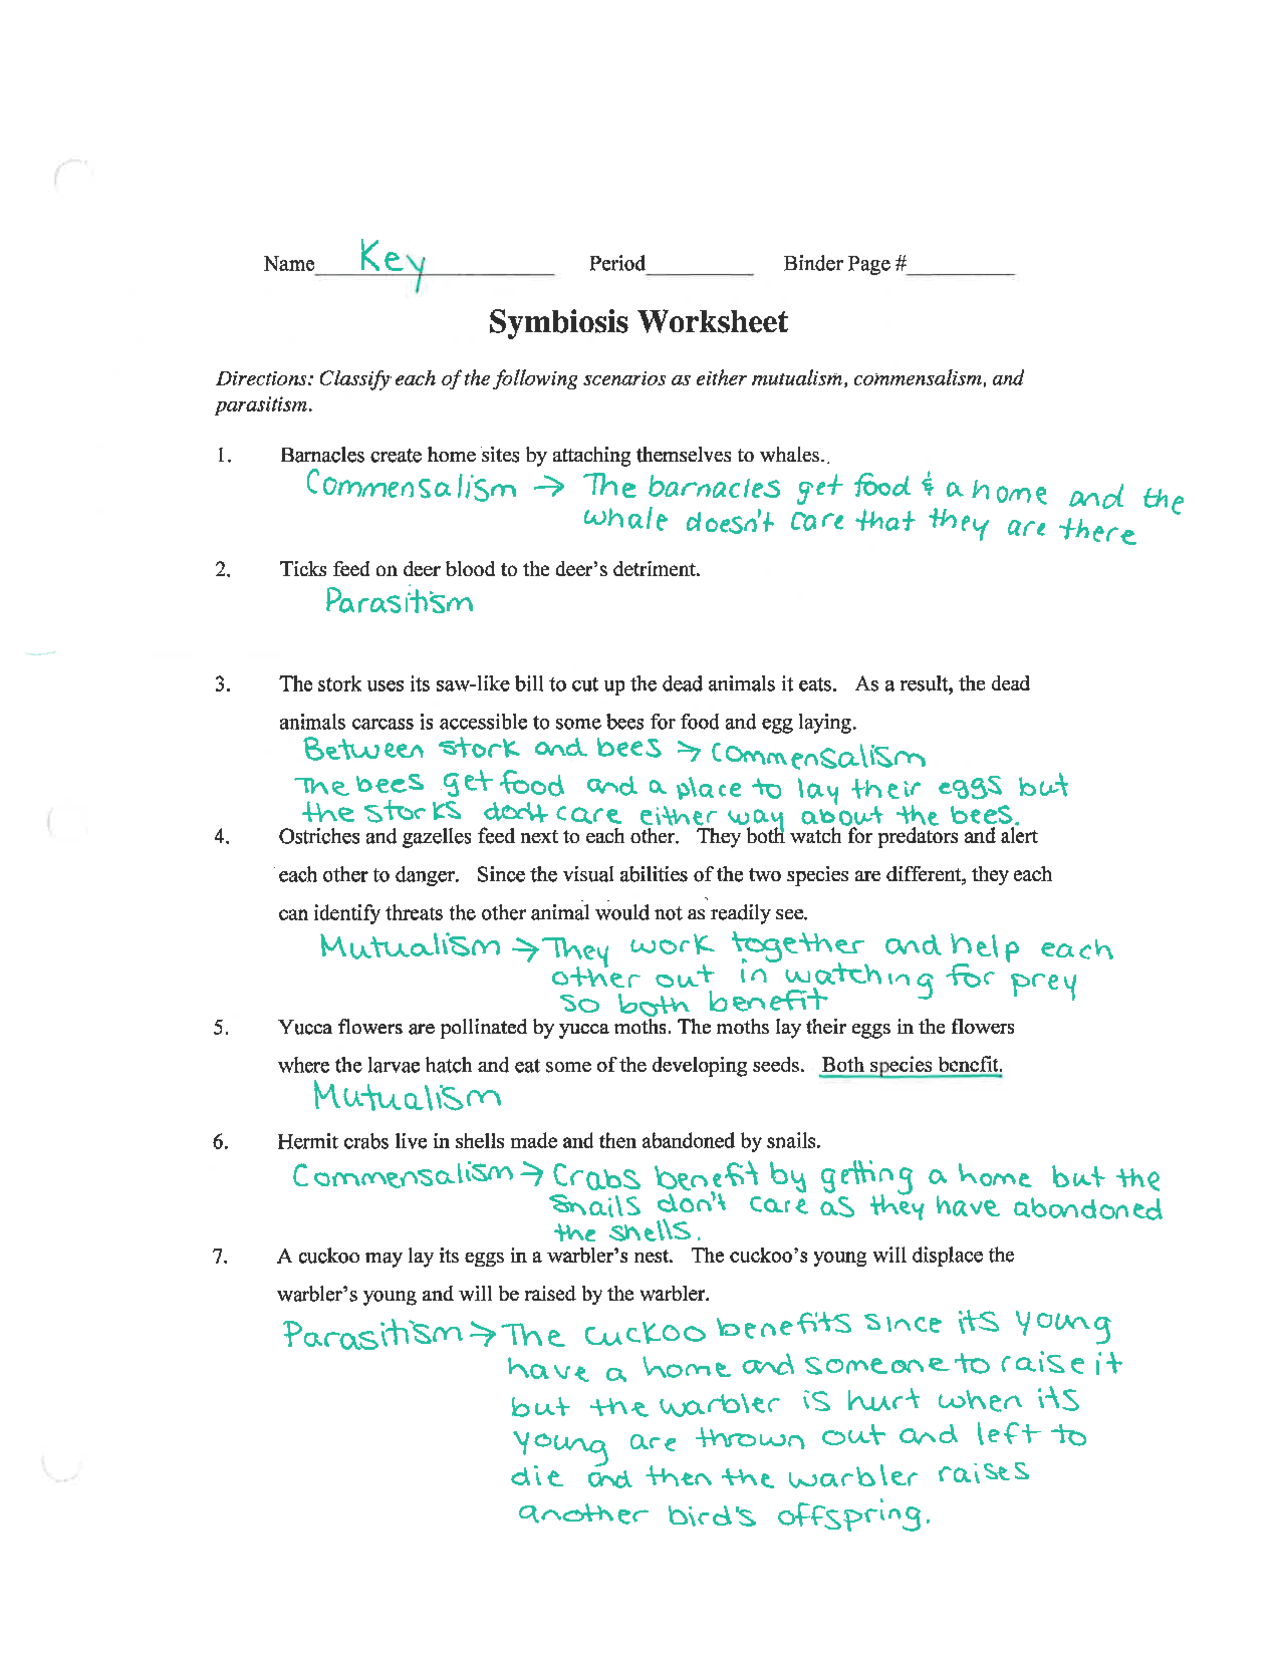 Name Key Period Binder Page #
Symbiosis Worksheet
Directions: Classify each of the following scenarios as either mutualism, commensalism, and
parasitism.
1. Barnacles create home sites by attaching themselves to whales..
Commensalism → The barnacles get food & a home and the
whale doesn't care that they are there
2. Ticks feed on deer blood to the deer's detriment.
Parasitism
3. The stork uses its saw-like bill to cut up the dead animals it eats. As a result, the dead
animals carcass is accessible to some bees for food and egg laying.
Between stork and bees → commensalism
The bees get food and a place to lay their eggs but
the storks don't care either way about the bees.
4. Ostriches and gazelles feed next to each other. They both watch for predators and alert
each other to danger. Since the visual abilities of the two species are different, they each
can identify threats the other animal would not as readily see.
Mutualism → They work together and help each
other out in watching for prey
so both benefit
5. Yucca flowers are pollinated by yucca moths. The moths lay their eggs in the flowers
where the larvae hatch and eat some of the developing seeds. Both species benefit.
Mutualism
6. Hermit crabs live in shells made and then abandoned by snails.
Commensalism → Crabs benefit by getting a home but the
snails don't care as they have abandoned
the shells.
7. A cuckoo may lay its eggs in a warbler's nest. The cuckoo's young will displace the
warbler's young and will be raised by the warbler.
Parasitism → The cuckoo benefits since its young
have a home and someone to raise it
but the warbler is hurt when its
young are thrown out and left to
die and then the warbler raises
another bird's offspring.